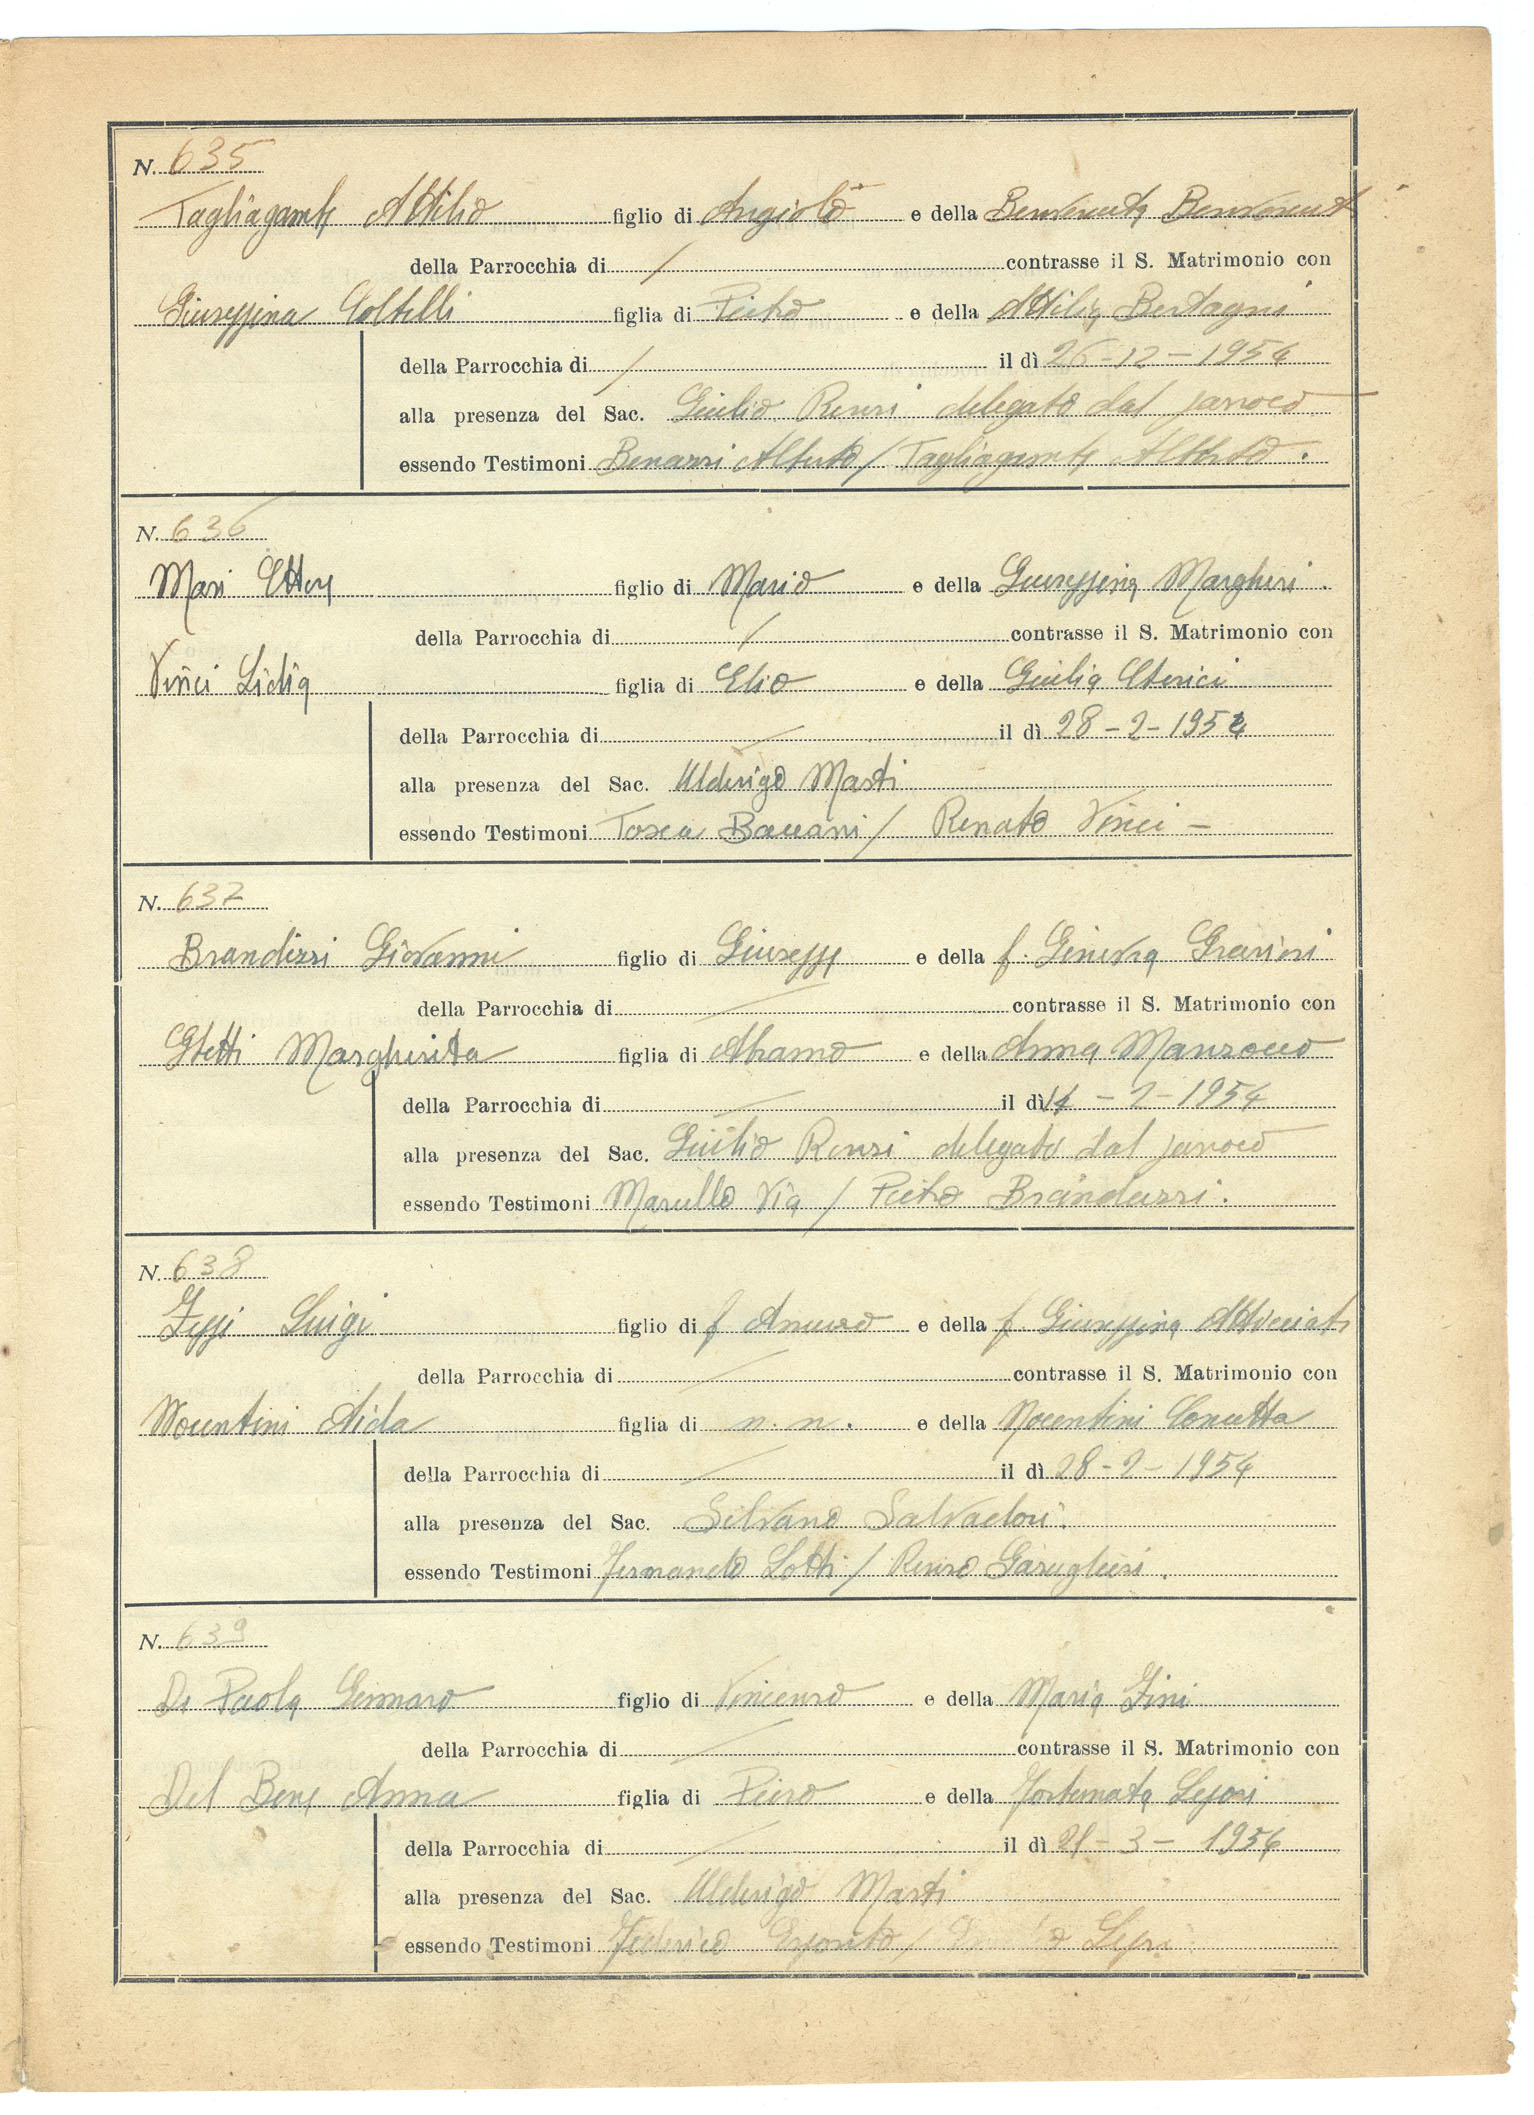 N. 635
Tagliagambe Attilio figlio di Angiolo e della Benvenuta Benvenuti
della Parrocchia di / contrasse il S. Matrimonio con
Giuseppina Coltelli figlia di Pietro e della Attilia Bertagni
della Parrocchia di / il dì 26-12-1954
alla presenza del Sac. Giulio Renzi delegato dal parroco
essendo Testimoni Benazzi Alberto / Tagliagambe Alberto.
N. 636
Mari Ettore figlio di Mario e della Giuseppina Margheri.
della Parrocchia di / contrasse il S. Matrimonio con
Vinci Lidia figlia di Elio e della Giulia Clerici
della Parrocchia di / il dì 28-2-1954
alla presenza del Sac. Ulderigo Masti
essendo Testimoni Tosca Baccani / Renato Vinci -
N. 637
Brandizzi Giovanni figlio di Giuseppe e della f. Ginevra
della Parrocchia di / contrasse il S. Matrimonio con
Ghetti Margherita figlia di Abramo e della Anna Manzocco
della Parrocchia di / il dì 14-2-1954
alla presenza del Sac. Giulio Renzi delegato dal parroco
essendo Testimoni Marullo Via / Pietro
N. 638
Zeppi Luigi figlio di f e della f. Giuseppina Attucciati
della Parrocchia di / contrasse il S. Matrimonio con
Nocentini Aida figlia di n. n. e della Nocentini Concetta
della Parrocchia di / il dì 28-2-1954
alla presenza del Sac. Silvano Salvadori.
essendo Testimoni Fernando Lotti / Renzo Garuglieri.
N. 639
Di Paola Gennaro figlio di Vincenzo e della Maria Zini
della Parrocchia di / contrasse il S. Matrimonio con
Del Bene Anna figlia di Piero e della Fortunata Lepori
della Parrocchia di / il dì 21-3-1954
alla presenza del Sac. Ulderigo Masti
essendo Testimoni Federico Esposito /